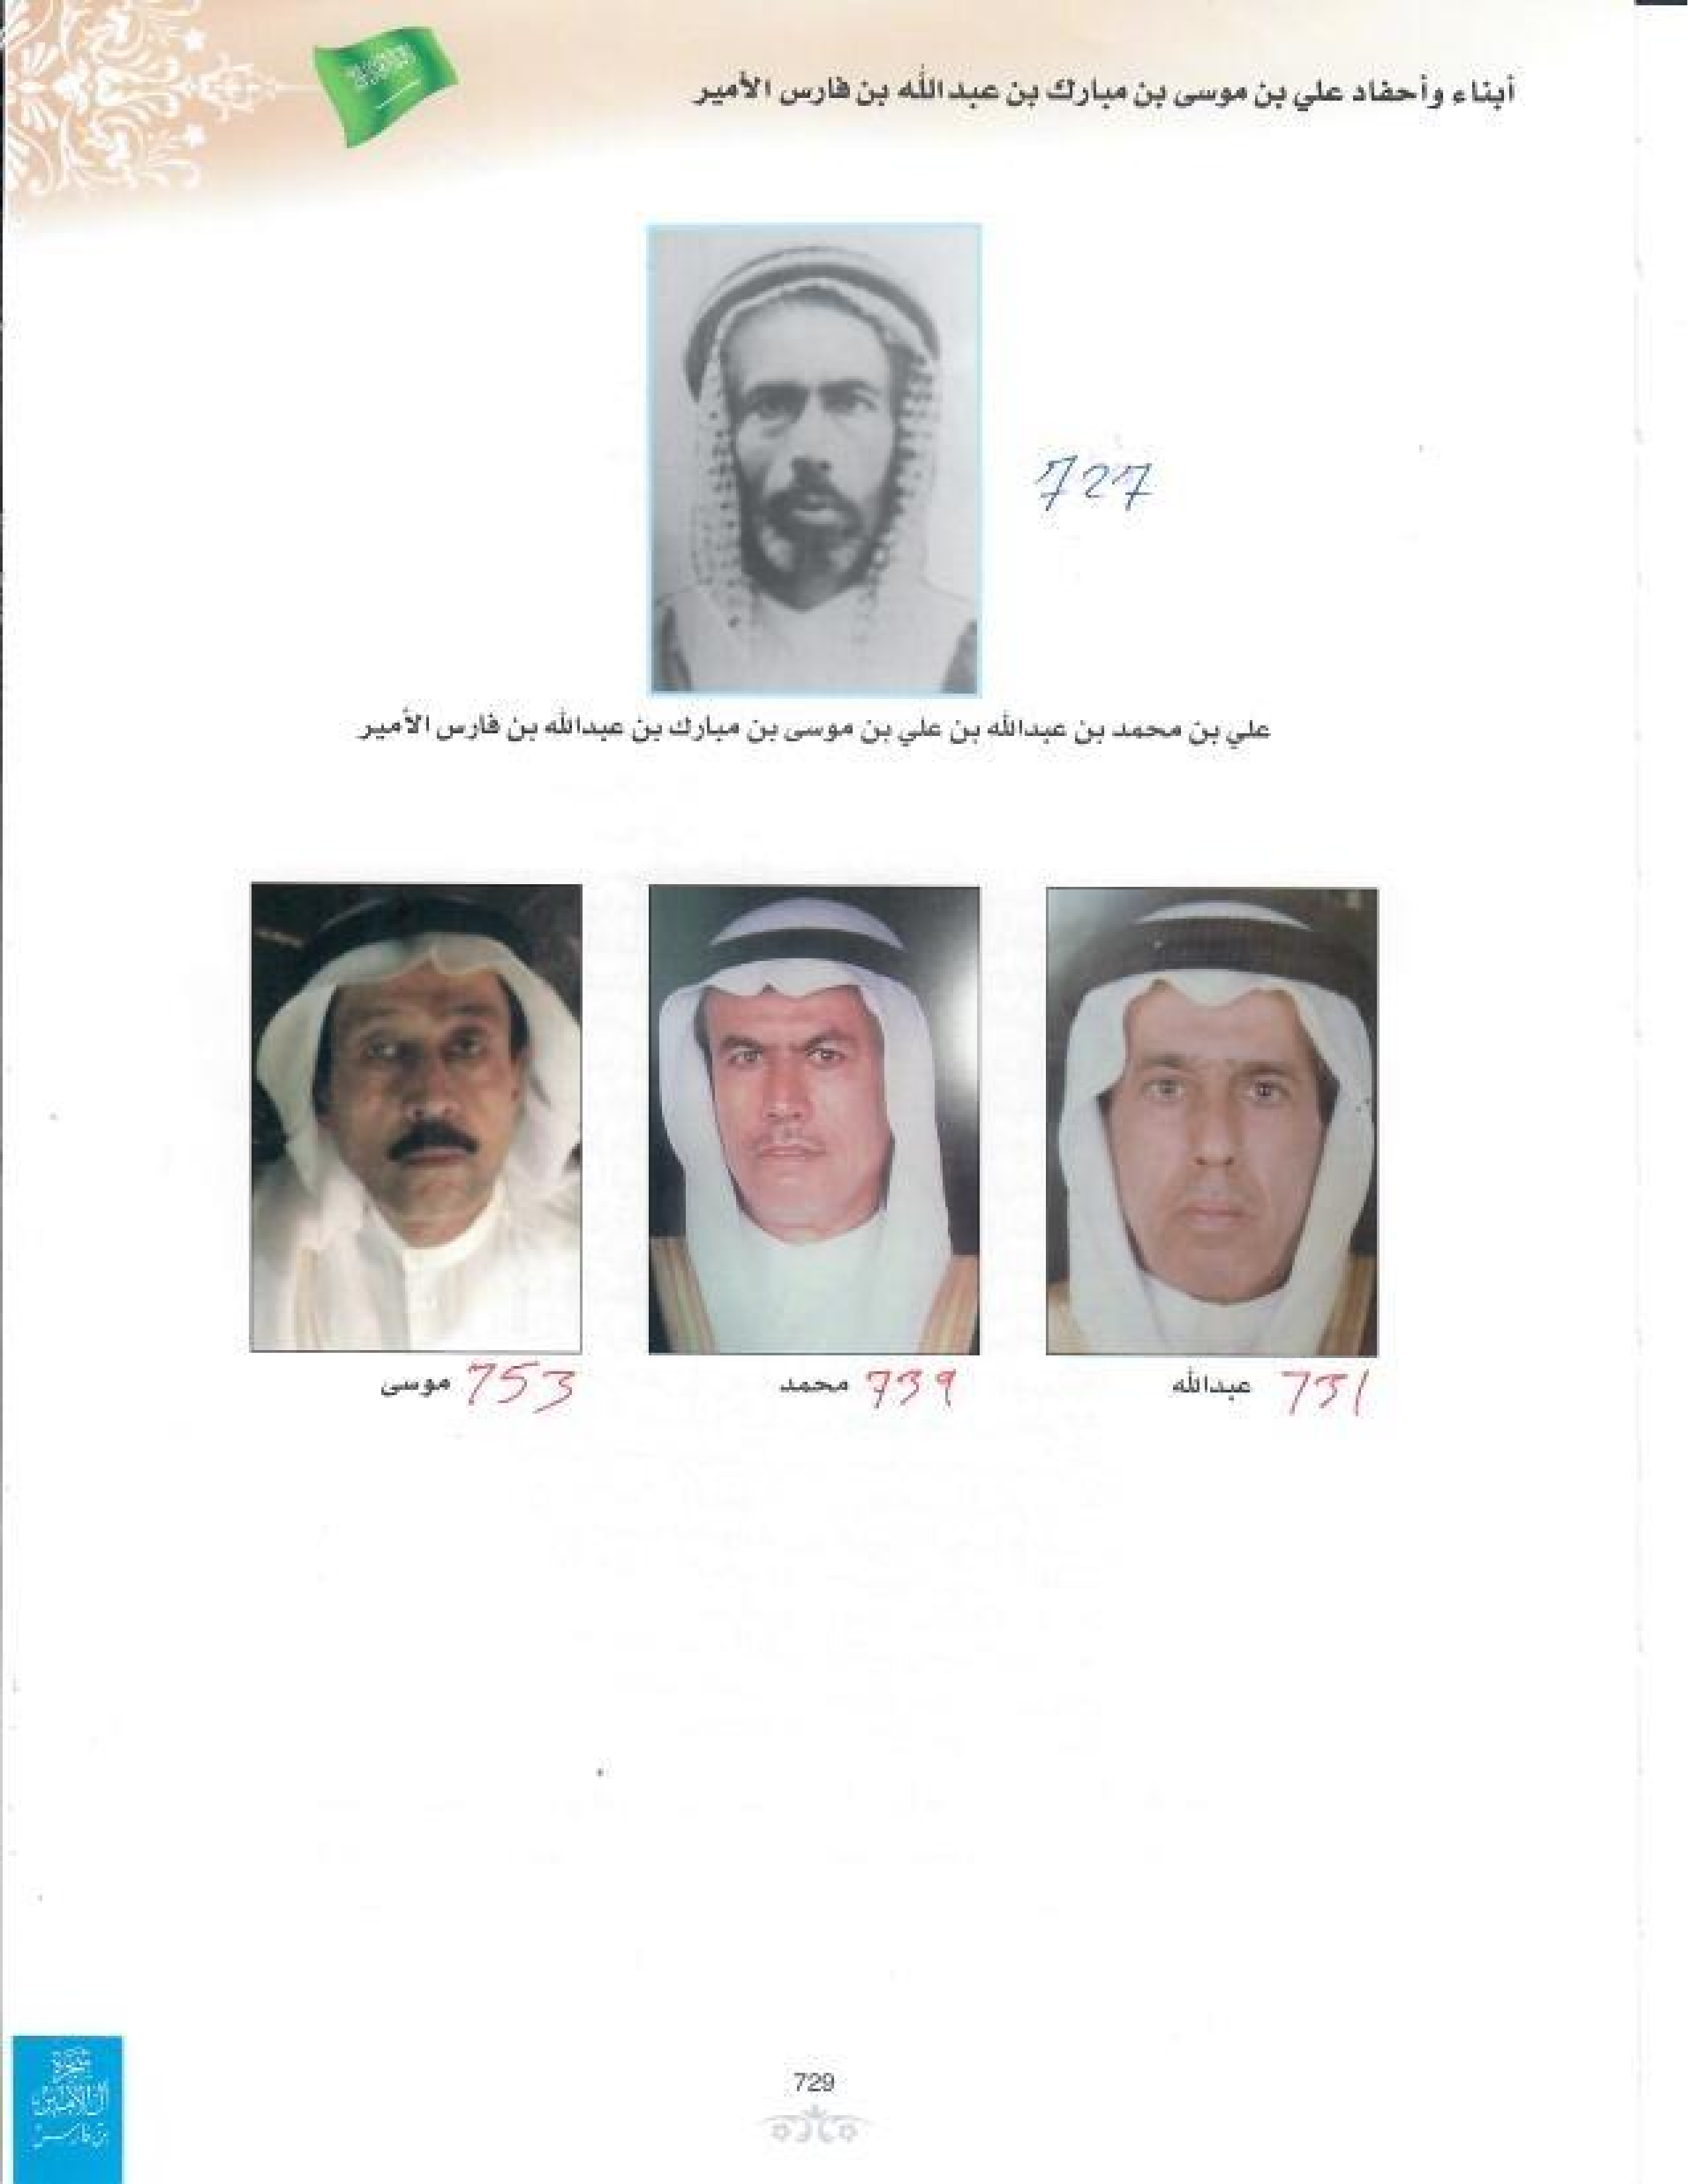 أبناء وأحفاد علي بن موسى بن مبارك بن عبد الله بن فارس الأمير
727
علي بن محمد بن عبدالله بن علي بن موسى بن مبارك بن عبدالله بن فارس الأمير
731 عبدالله
739 محمد
753 موسى
729
شجرة
آل الأمير
بن فارس